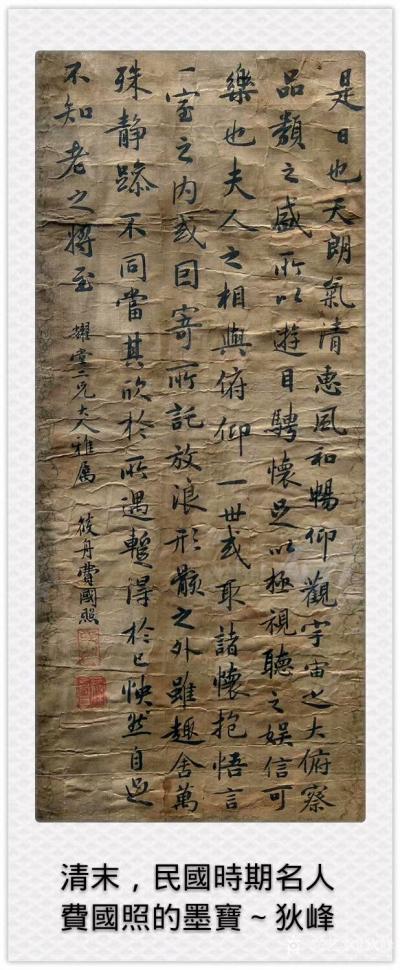 是日也天朗氣清惠風和暢仰觀宇宙之大俯察
品類之盛所以遊目騁懷足以極視聽之娛信可
樂也夫人之相與俯仰一世或取諸懷抱悟言
一室之內或因寄所託放浪形骸之外雖趣舍萬
殊靜躁不同當其欣於所遇暫得於己怏然自足
不知老之將至 耀堂二兄大人雅属 筱舟費國照
清末，民國時期名人
費國照的墨寶～狄峰